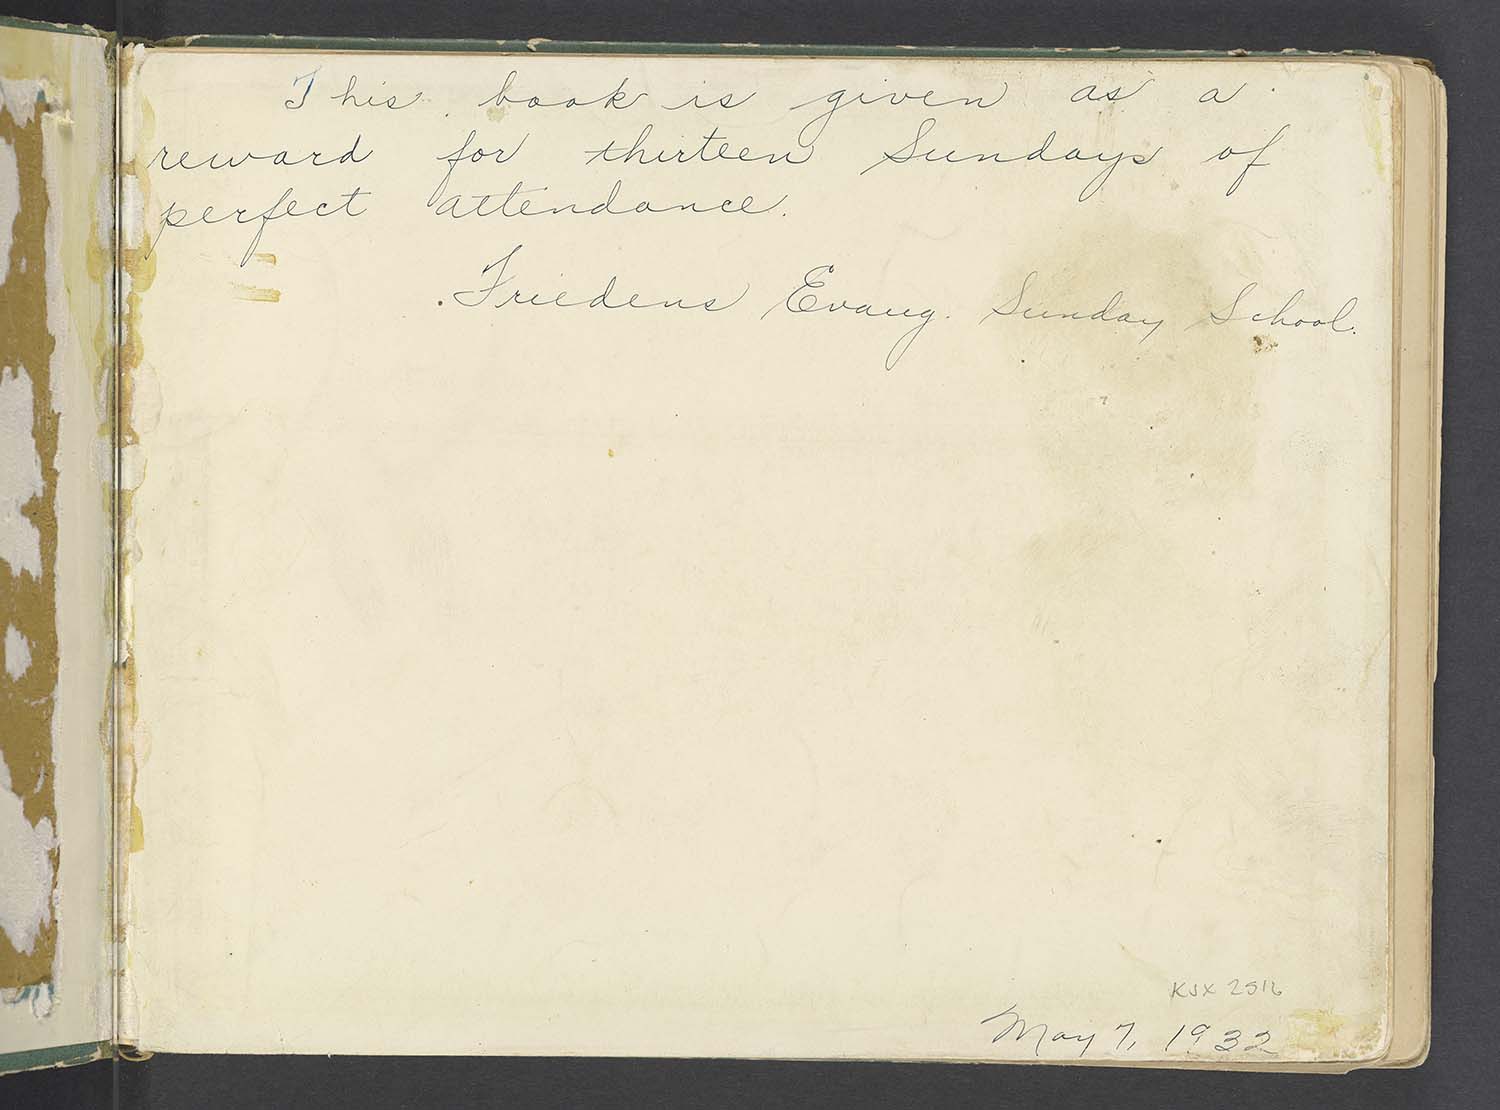 This book is given as a
reward for thirteen Sundays of
perfect attendance.
Friedens Evang. Sunday School.
KJX 2516
May 7, 1932